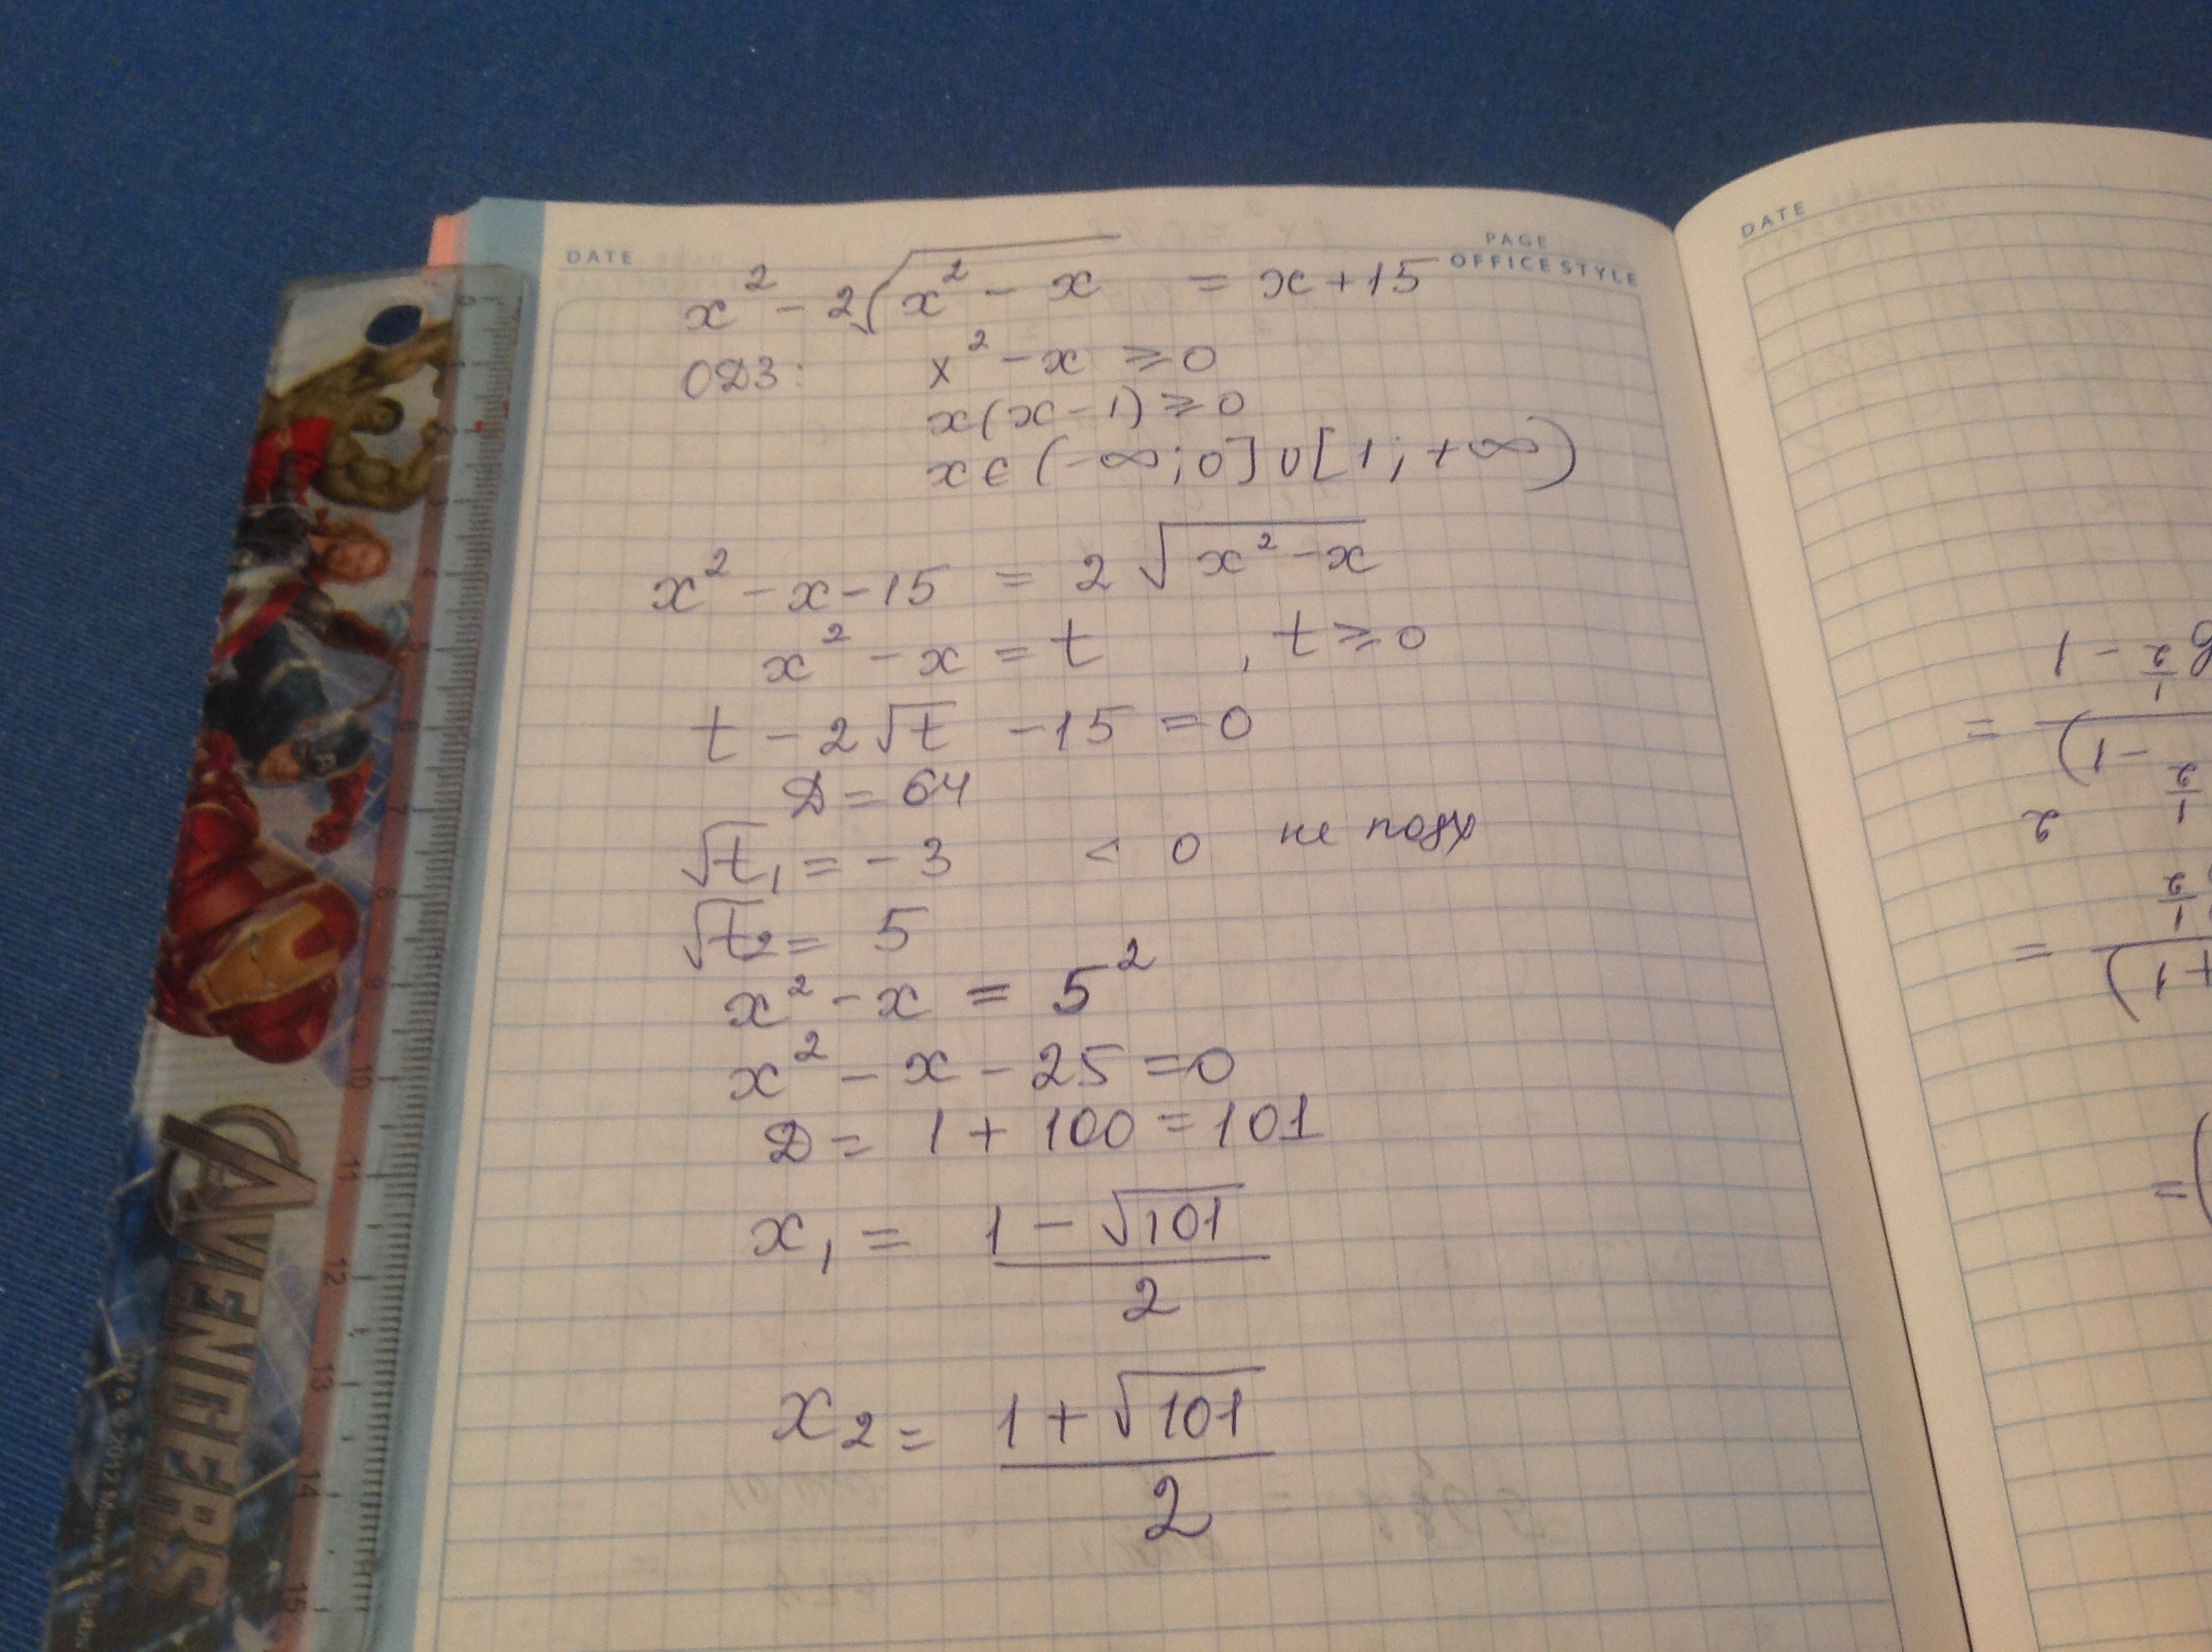 DATE
PAGE
OFFICE STYLE
x² - 2√(x² - x) = x + 15
ОДЗ: x² - x ≥ 0
x(x - 1) ≥ 0
x ∈ (-∞; 0] ∪ [1; +∞)
x² - x - 15 = 2√(x² - x)
x² - x = t , t ≥ 0
t - 2√t - 15 = 0
D = 64
√t₁ = -3 < 0 не подх
√t₂ = 5
x² - x = 5²
x² - x - 25 = 0
D = 1 + 100 = 101
x₁ = (1 - √101)/2
x₂ = (1 + √101)/2
DATE
AVENGERS
0 1 2 3 4 5 6 7 8 9 10 11 12 13 14 15